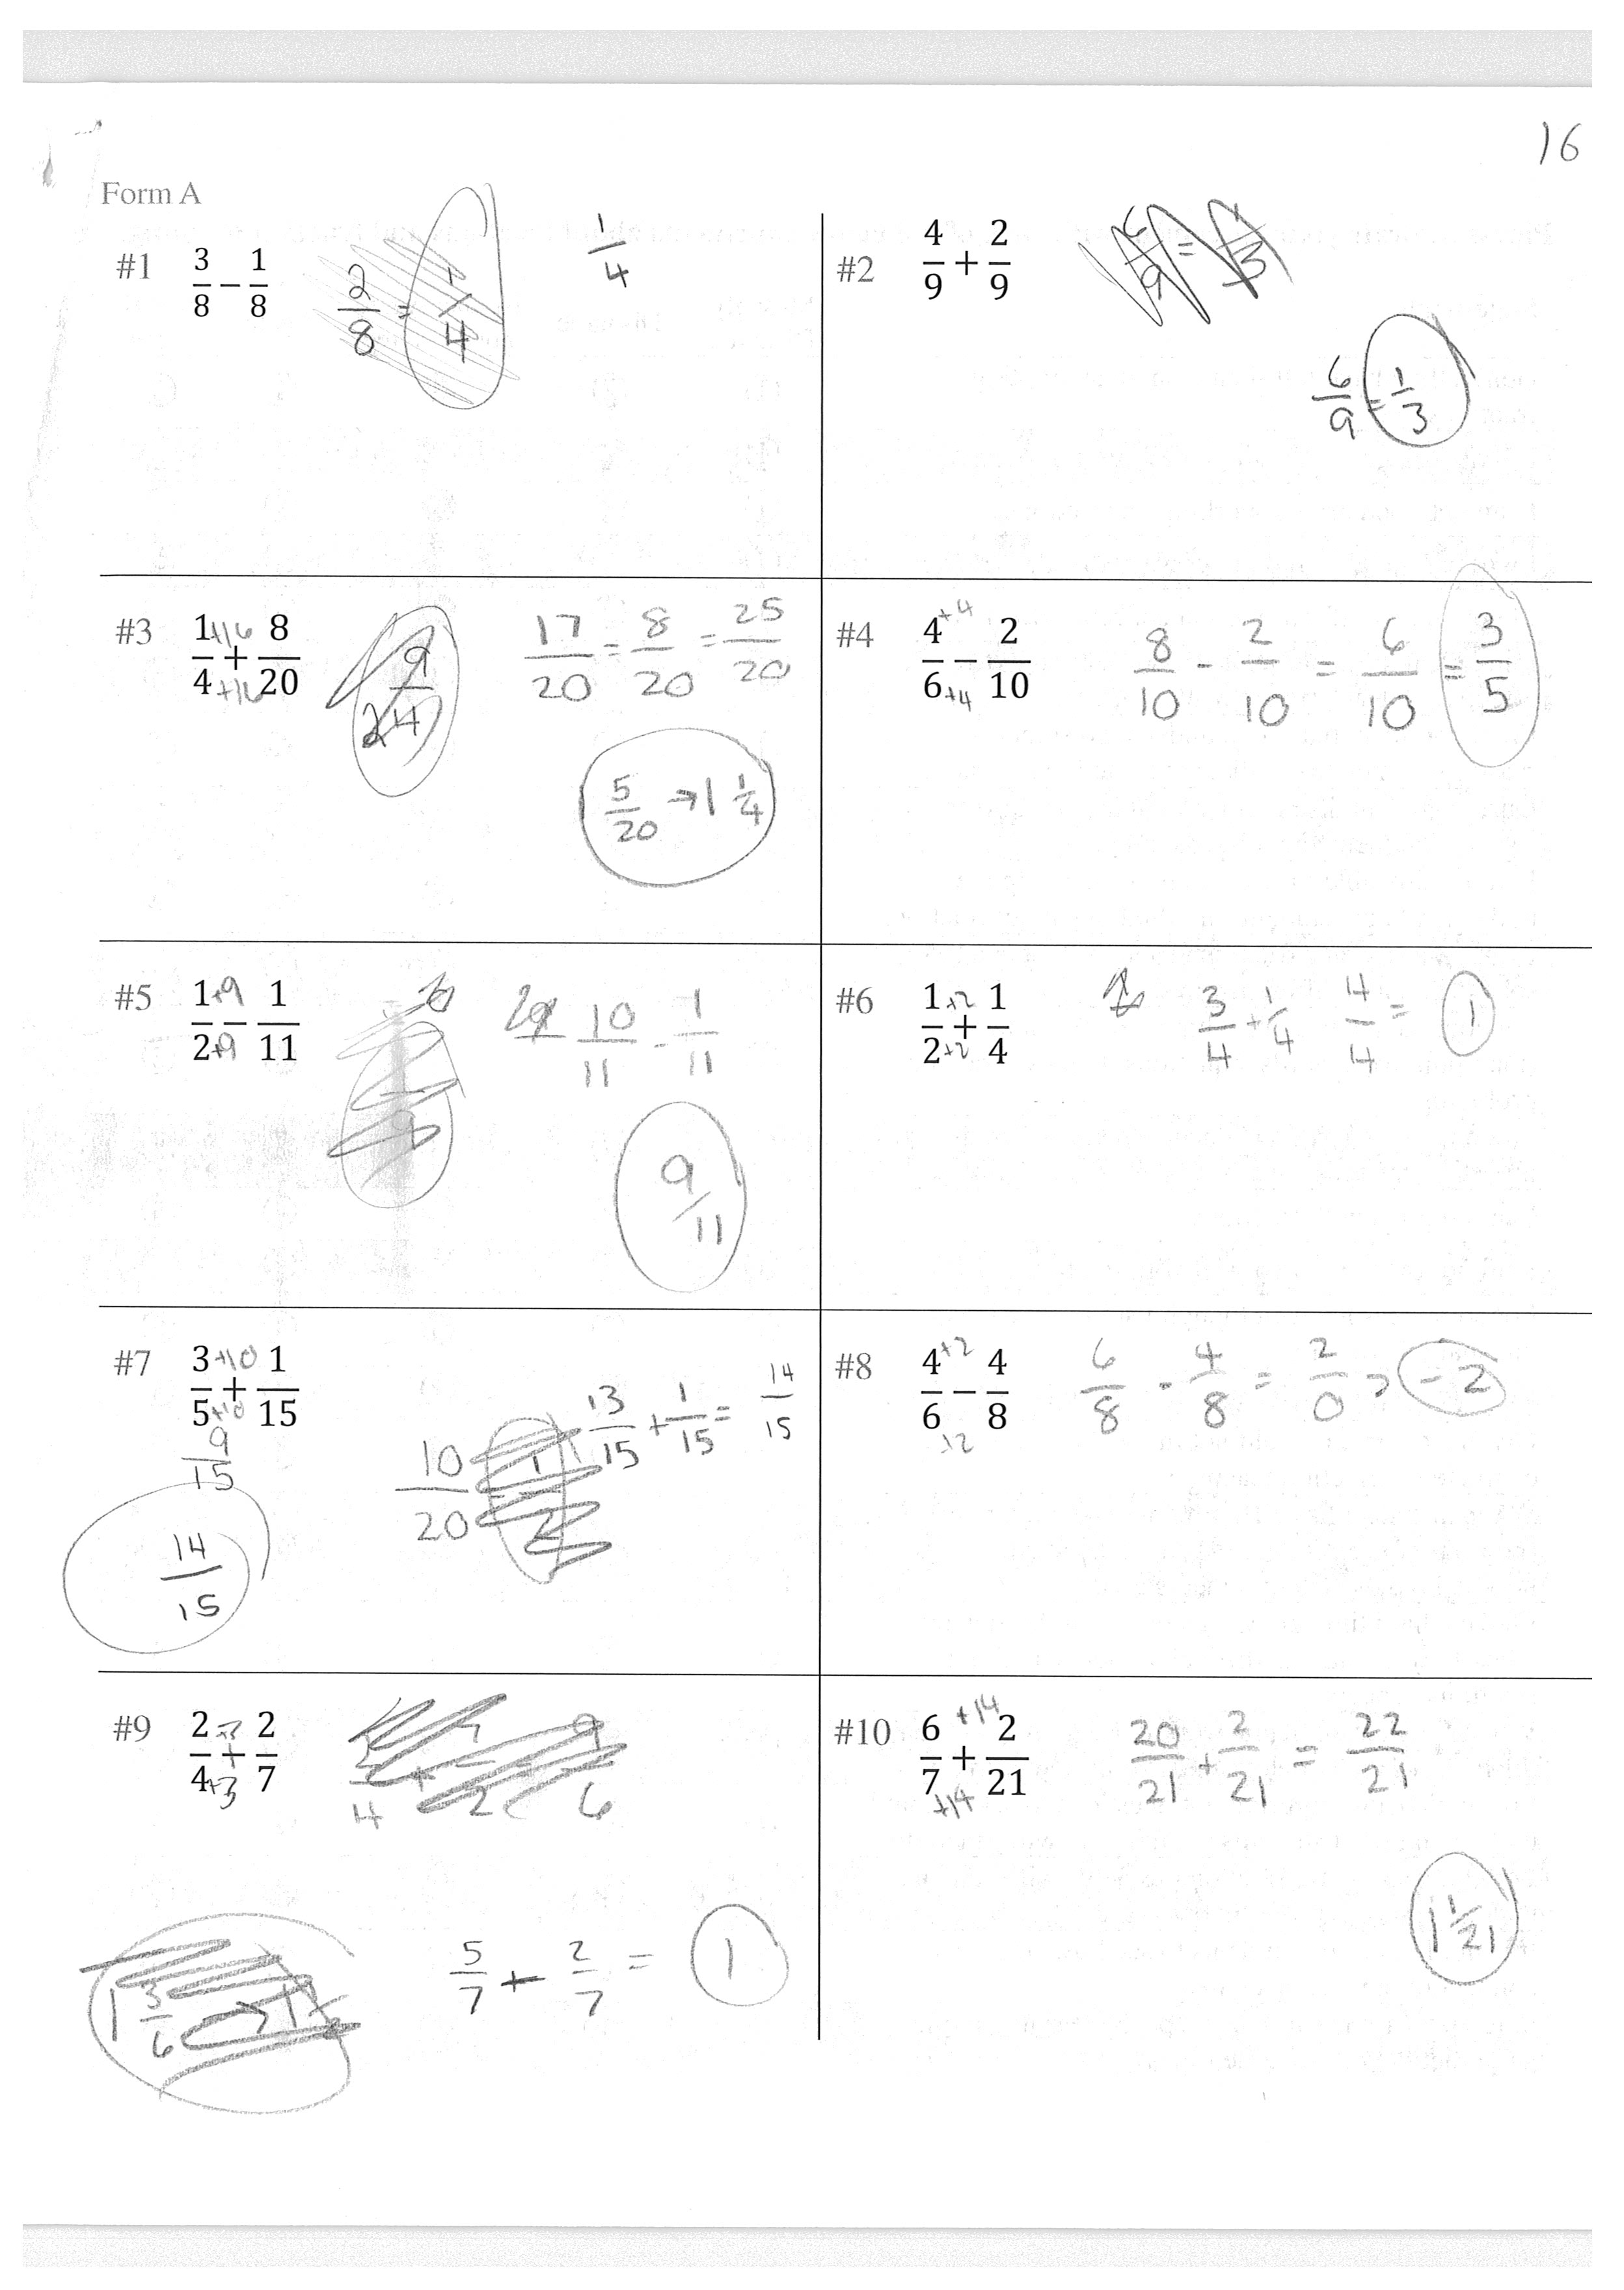 16
Form A
#1 3/8 − 1/8
2/8 = 1/4
1/4
#2 4/9 + 2/9
6/9 = 1/3
6/9 = 1/3
#3 1/4 + 8/20
+16
+16
9/24
17/20 = 8/20 = 25/20
5/20 → 1 1/4
#4 4/6 − 2/10
+4
+4
8/10 - 2/10 = 6/10 = 3/5
#5 1/2 − 1/11
+9
+9
10/11 - 1/11
9/11
#6 1/2 + 1/4
+2
+2
3/4 + 1/4 4/4 = 1
#7 3/5 + 1/15
+10
+10
9/15
14/15
10/20 = 1/2
13/15 + 1/15 = 14/15
#8 4/6 − 4/8
+2
+2
6/8 - 4/8 = 2/0 = - 2
#9 2/4 + 2/7
+3
+3
1 3/6 → 1
5/7 + 2/7 = 1
#10 6/7 + 2/21
+14
+14
20/21 + 2/21 = 22/21
1 1/21